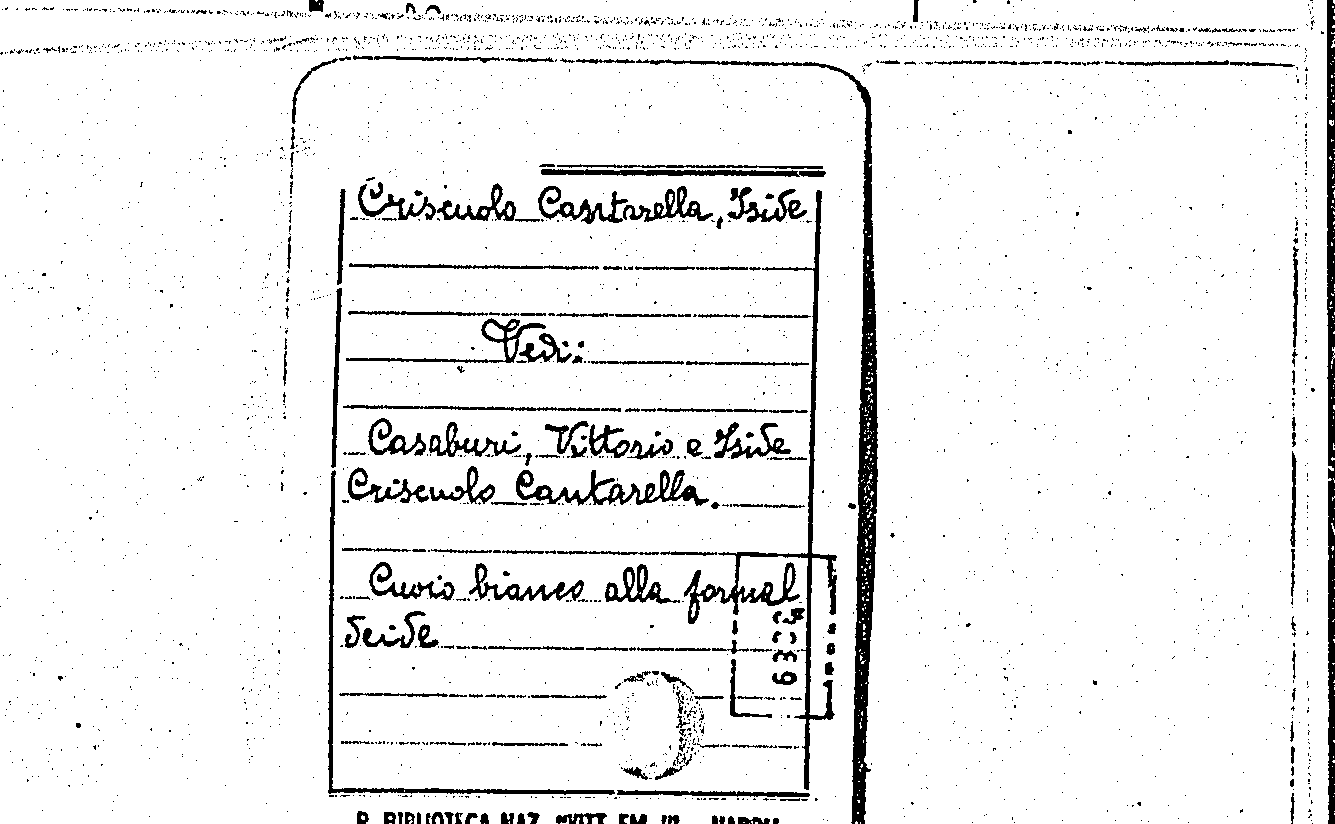 Criscuolo Cantarella, Iside
Vedi:
Casaburi, Vittorio e Iside
Criscuolo Cantarella.
Cuoio bianco alla formal
deide
R. BIBLIOTECA NAZ. "VITT. EM. III" - NAPOLI